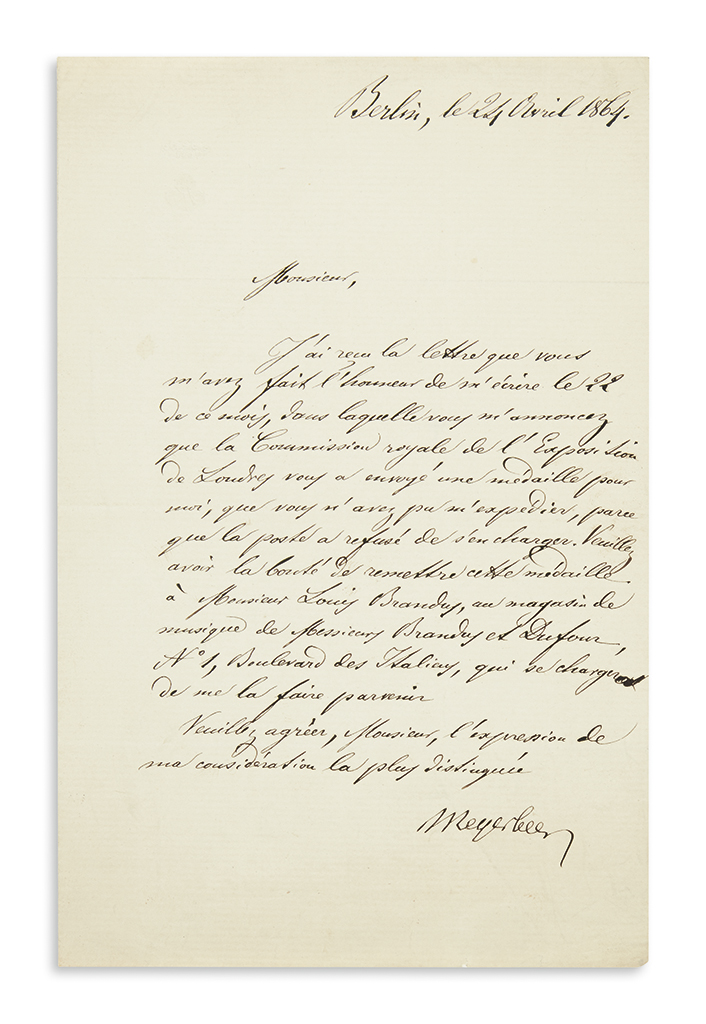 Berlin, le 24 Avril 1864.
Monsieur,
J'ai reçu la lettre que vous
m'avez fait l'honneur de m'écrire le 22
de ce mois, dans laquelle vous m'annoncez
que la Commission royale de l'Exposition
de Londres vous a envoyé une médaille pour
moi, que vous n'avez pu m'expédier, parce
que la poste a refusé de s'en charger. Veuillez
avoir la bonté de remettre cette médaille
à Monsieur Louis Brandus, au magasin de
musique de Messieurs Brandus et Dufour,
No 1, Boulevard des Italiens, qui se chargera
de me la faire parvenir
Veuillez agréer, Monsieur, l'expression de
ma considération la plus distinguée
Meyerbeer